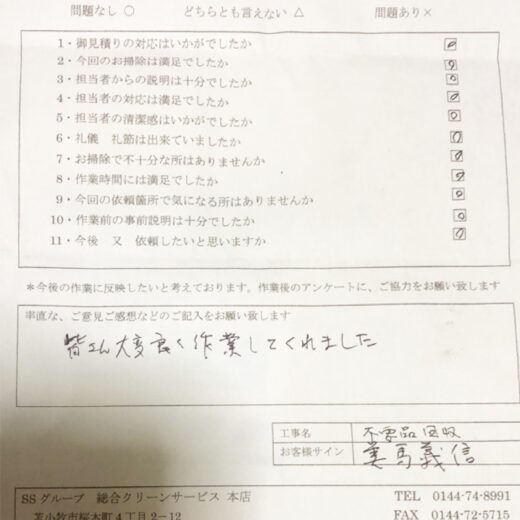 問題なし ○ どちらとも言えない △ 問題あり×
1・御見積りの対応はいかがでしたか ○
2・今回のお掃除は満足でしたか ○
3・担当者からの説明は十分でしたか ○
4・担当者の対応は満足でしたか ○
5・担当者の清潔感はいかがでしたか ○
6・礼儀 礼節は出来ていましたか ○
7・お掃除で不十分な所はありませんか ○
8・作業時間には満足でしたか ○
9・今回の依頼箇所で気になる所はありませんか ○
10・作業前の事前説明は十分でしたか ○
11・今後 又 依頼したいと思いますか ○
*今後の作業に反映したいと考えております。作業後のアンケートに、ご協力をお願い致します
率直な、ご意見ご感想などのご記入をお願い致します
皆さん大変良く作業してくれました
工事名 不要品回収
お客様サイン 美馬義信
SSグループ 総合クリーンサービス 本店 TEL 0144-74-8991
苫小牧市桜木町4丁目2-12 FAX 0144-72-5715